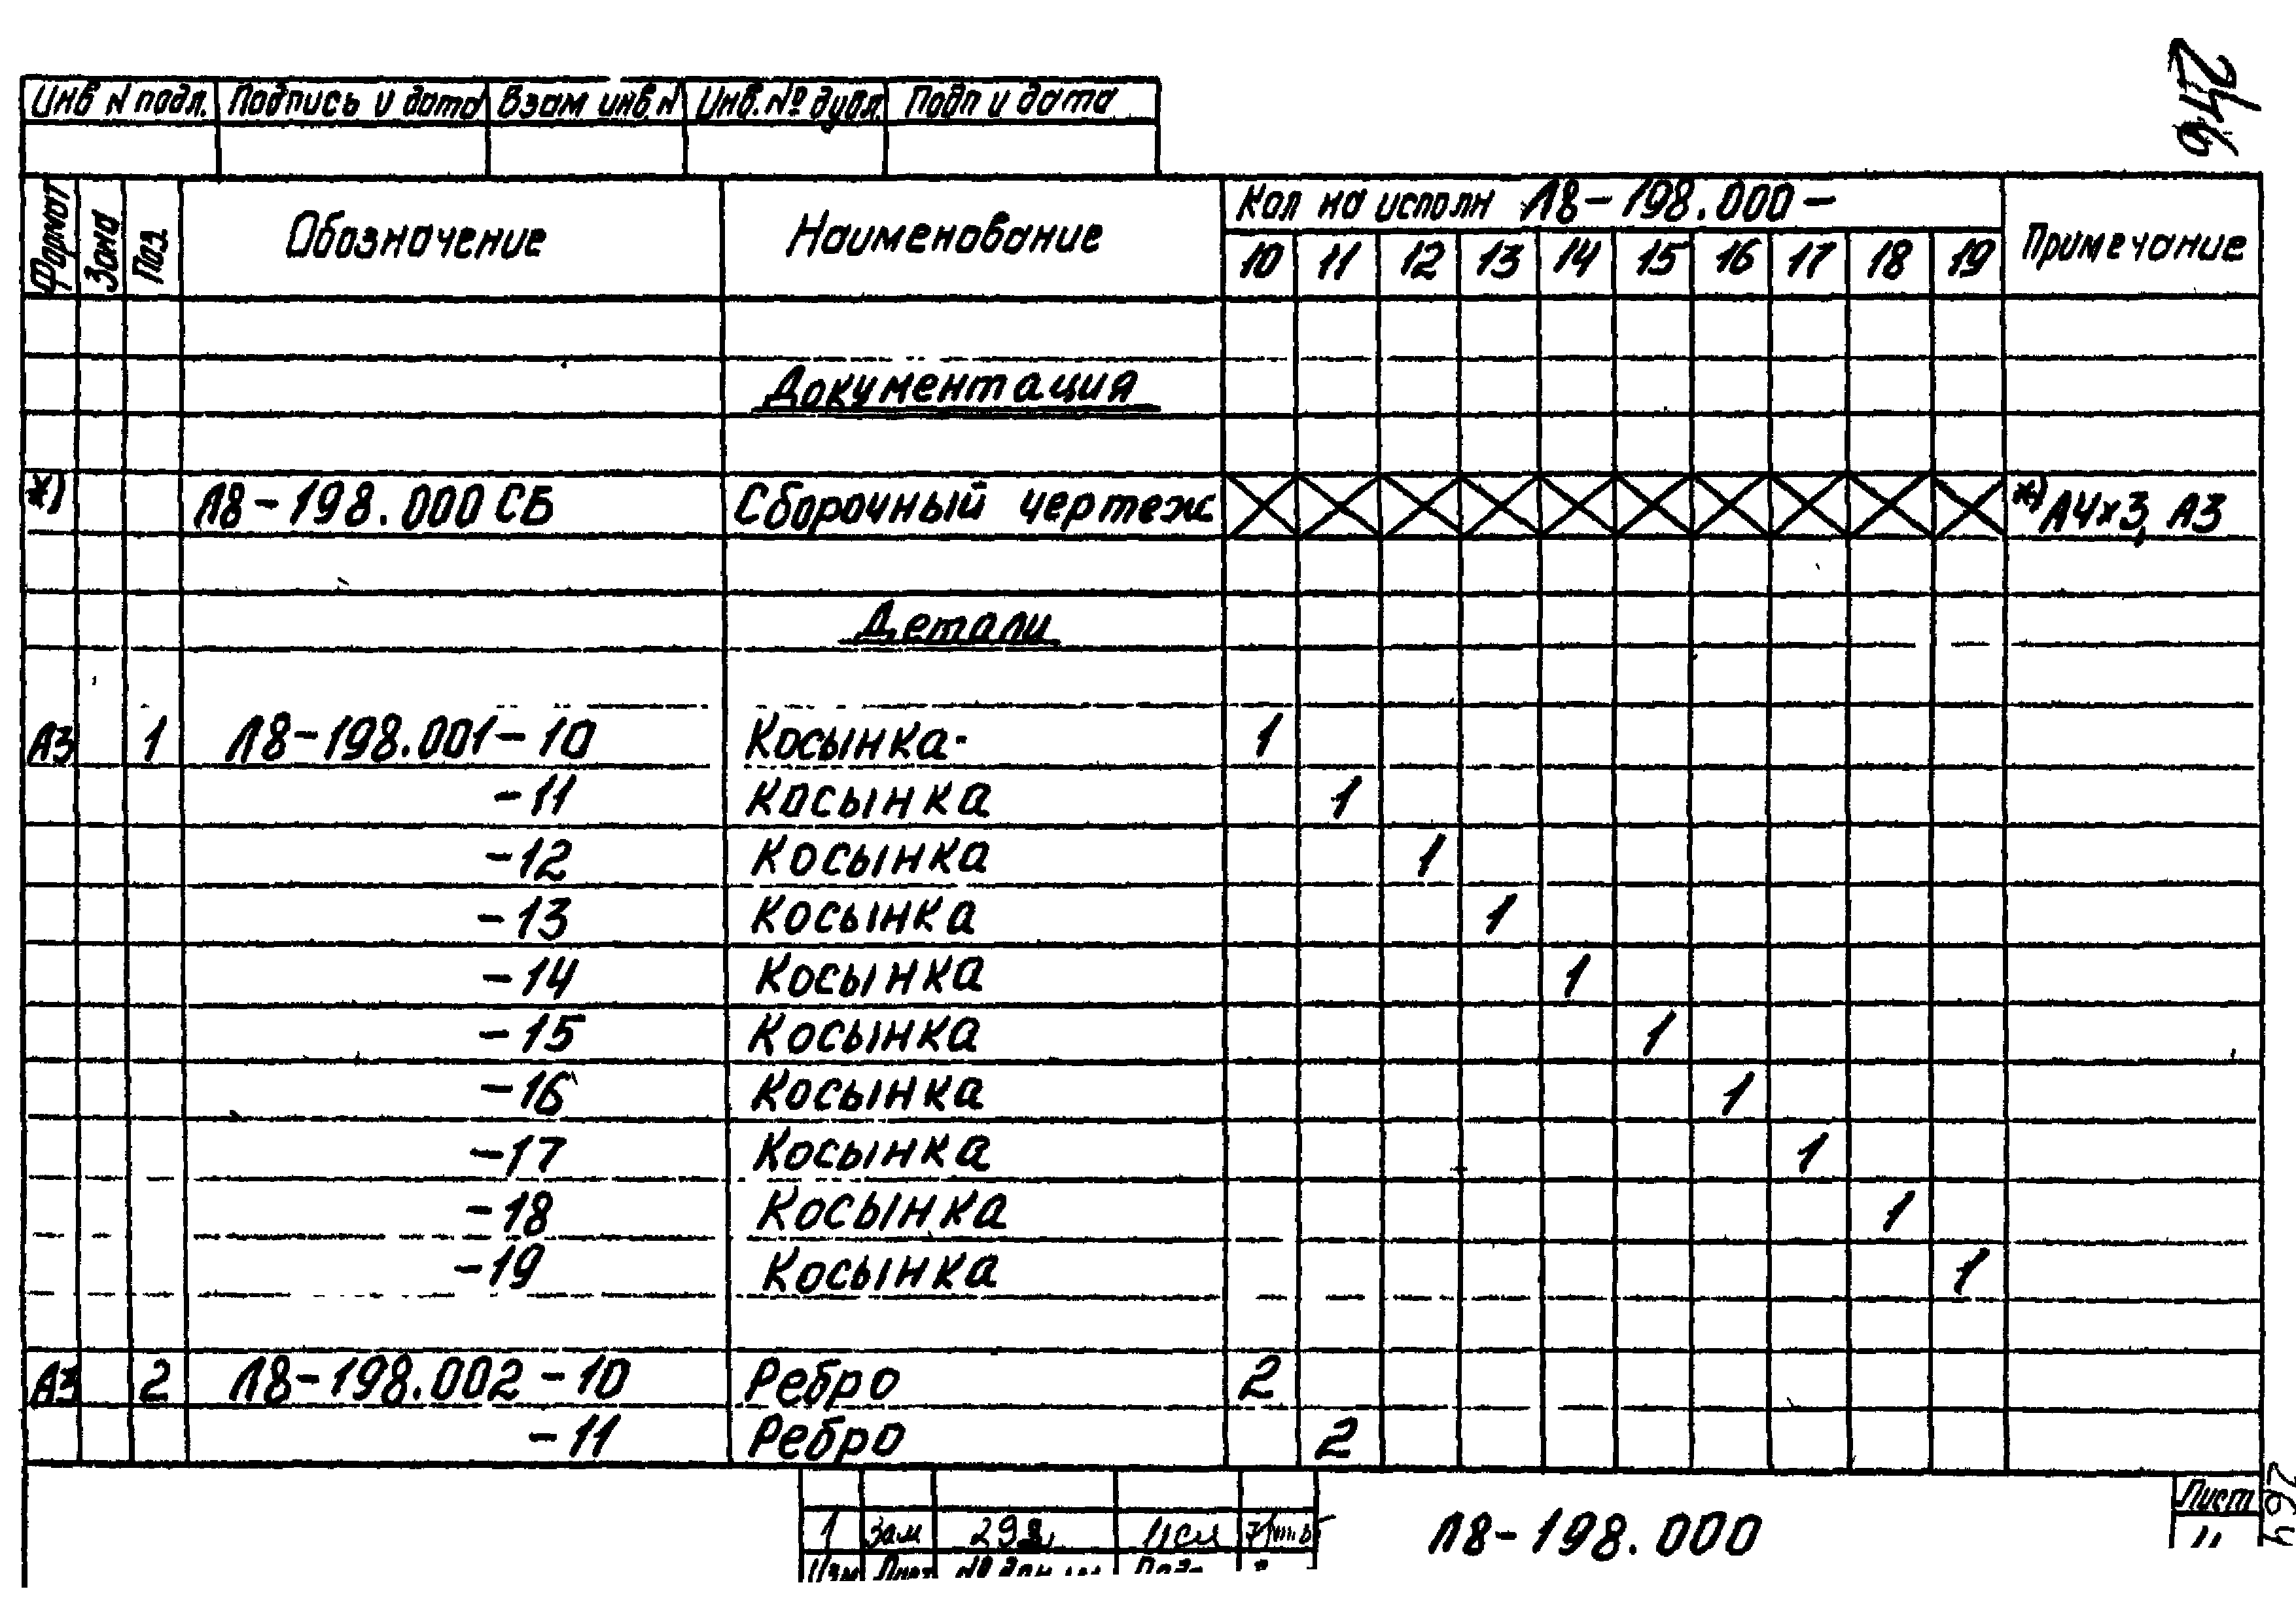 246
Инв N подл. Подпись и дата Взам инв N Инв. № дубл. Подп и дата
Формат Зона Поз Обозначение Наименование Кол на исполн Л8-198.000- Примечание
10 11 12 13 14 15 16 17 18 19
Документация
*) Л8-198.000 СБ Сборочный чертеж *) А4х3, А3
Детали
А3 1 Л8-198.001-10 Косынка 1
-11 Косынка 1
-12 Косынка 1
-13 Косынка 1
-14 Косынка 1
-15 Косынка 1
-16 Косынка 1
-17 Косынка 1
-18 Косынка 1
-19 Косынка 1
А3 2 Л8-198.002-10 Ребро 2
-11 Ребро 2
1 Зам
Изм Лист № докум
Л8-198.000
Лист
11